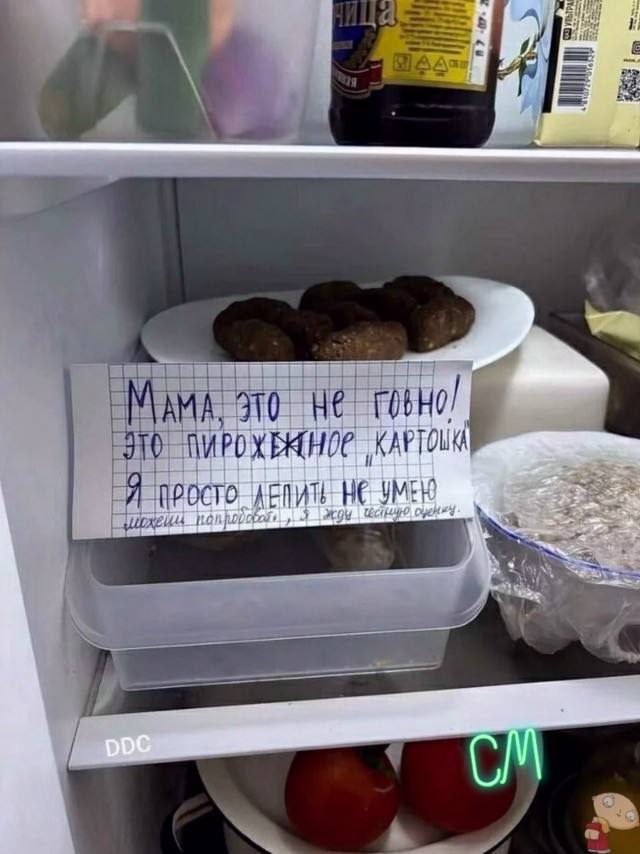 чица
МАМА, ЭТО НЕ ГОВНО!
ЭТО ПИРОЖЕНОЕ „КАРТОШКА"
Я ПРОСТО ЛЕПИТЬ НЕ УМЕЮ
можеш попробовать, я жду честную оценку.
DDC
СМ